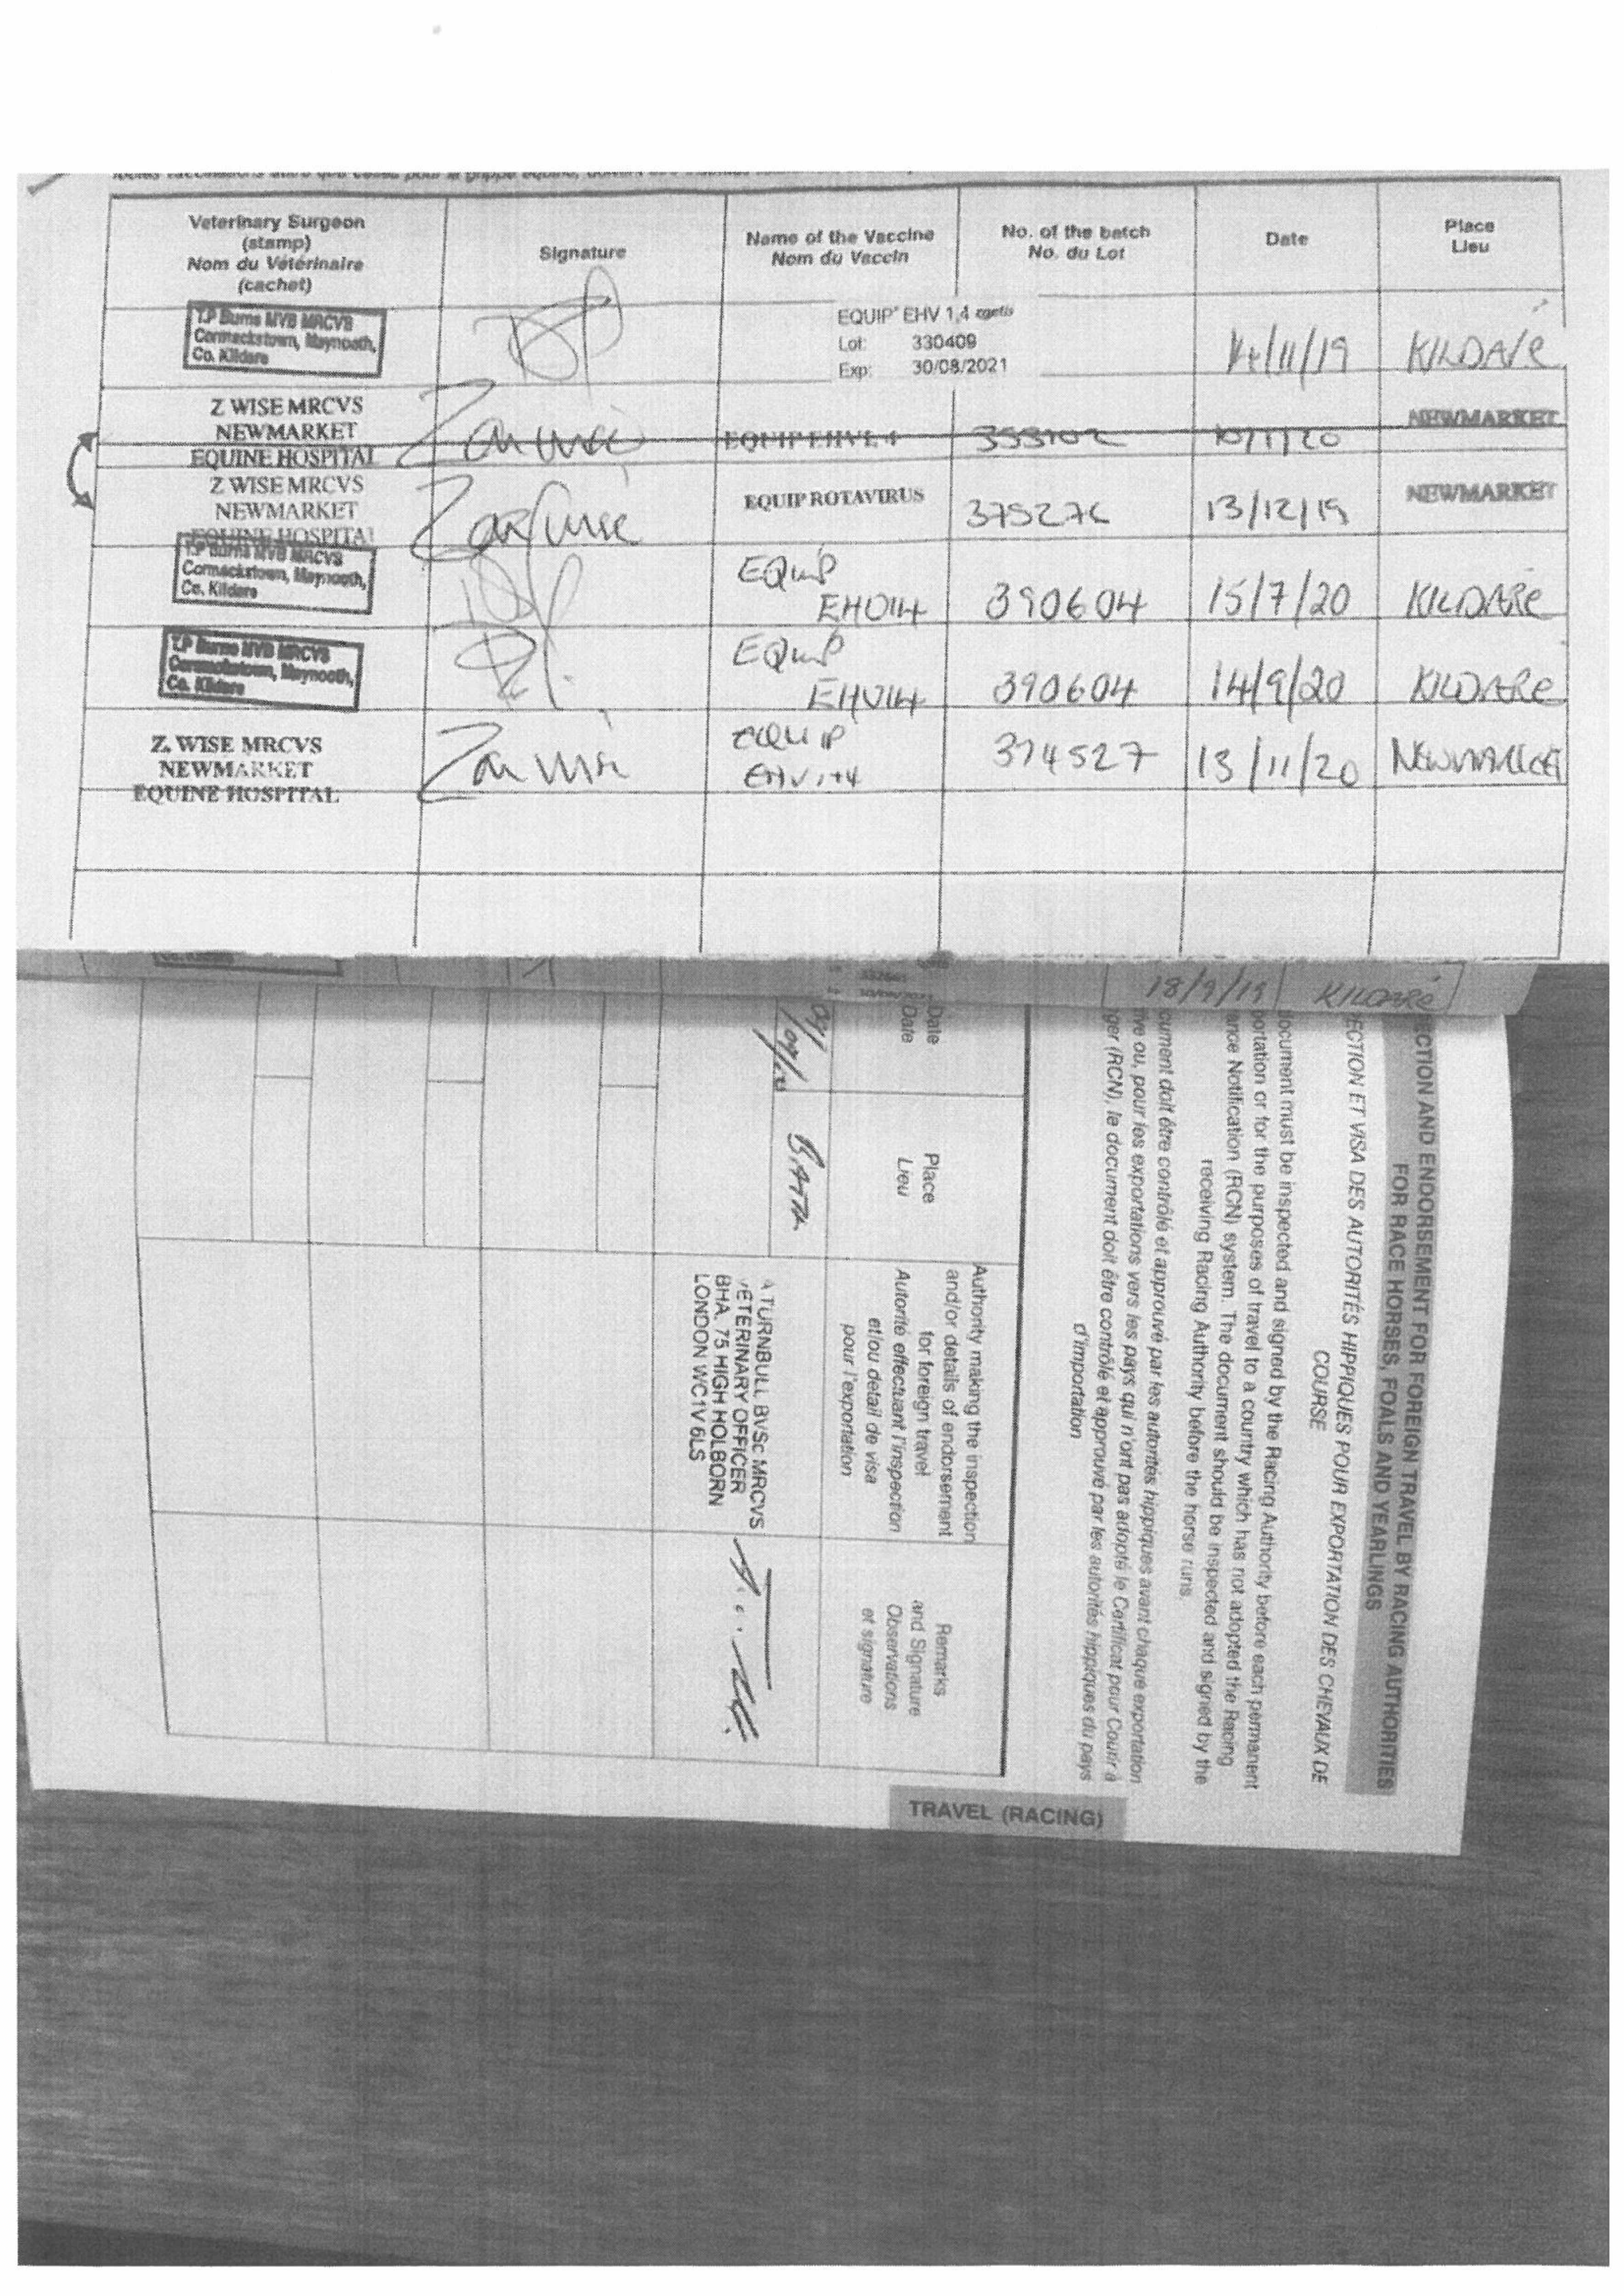 Veterinary Surgeon
(stamp)
Nom du Vétérinaire
(cachet)
Signature
Name of the Vaccine
Nom du Vaccin
No. of the batch
No. du Lot
Date
Place
Lieu
T.P Burns MVB MRCVS
Cormackstown, Maynooth,
Co. Kildare
EQUIP® EHV 1,4 zoetis
Lot: 330409
Exp: 30/08/2021
14/11/19
KILDARE
Z WISE MRCVS
NEWMARKET
EQUINE HOSPITAL
EQUIP EHV1,4
10/1/20
NEWMARKET
Z WISE MRCVS
NEWMARKET
EQUINE HOSPITAL
EQUIP ROTAVIRUS
13/12/19
NEWMARKET
T.P Burns MVB MRCVS
Cormackstown, Maynooth,
Co. Kildare
EQUIP
EHV14
390604
15/7/20
KILDARE
T.P Burns MVB MRCVS
Cormackstown, Maynooth,
Co. Kildare
EQUIP
EHV14
390604
14/9/20
KILDARE
Z. WISE MRCVS
NEWMARKET
EQUINE HOSPITAL
EQUIP
EHV1+4
374527
13/11/20
NEWMARKET
Co. Kildare
18/9/19
KILDARE
ECTION AND ENDORSEMENT FOR FOREIGN TRAVEL BY RACING AUTHORITIES
FOR RACE HORSES, FOALS AND YEARLINGS
ECTION ET VISA DES AUTORITÉS HIPPIQUES POUR EXPORTATION DES CHEVAUX DE
COURSE
ocument must be inspected and signed by the Racing Authority before each permanent
portation or for the purposes of travel to a country which has not adopted the Racing
ance Notification (RCN) system. The document should be inspected and signed by the
receiving Racing Authority before the horse runs.
cument doit être contrôlé et approuvé par les autorités hippiques avant chaque exportation
ive ou, pour les exportations vers les pays qui n'ont pas adopté le Certificat pour Courir à
ger (RCN), le document doit être contrôlé et approuvé par les autorités hippiques du pays
d'importation
Date
Date
Place
Lieu
Authority making the inspection
and/or details of endorsement
for foreign travel
Autorité effectuant l'inspection
et/ou detail de visa
pour l'exportation
Remarks
and Signature
Observations
et signature
BATH
A TURNBULL BVSc MRCVS
VETERINARY OFFICER
BHA, 75 HIGH HOLBORN
LONDON WC1V 6LS
TRAVEL (RACING)